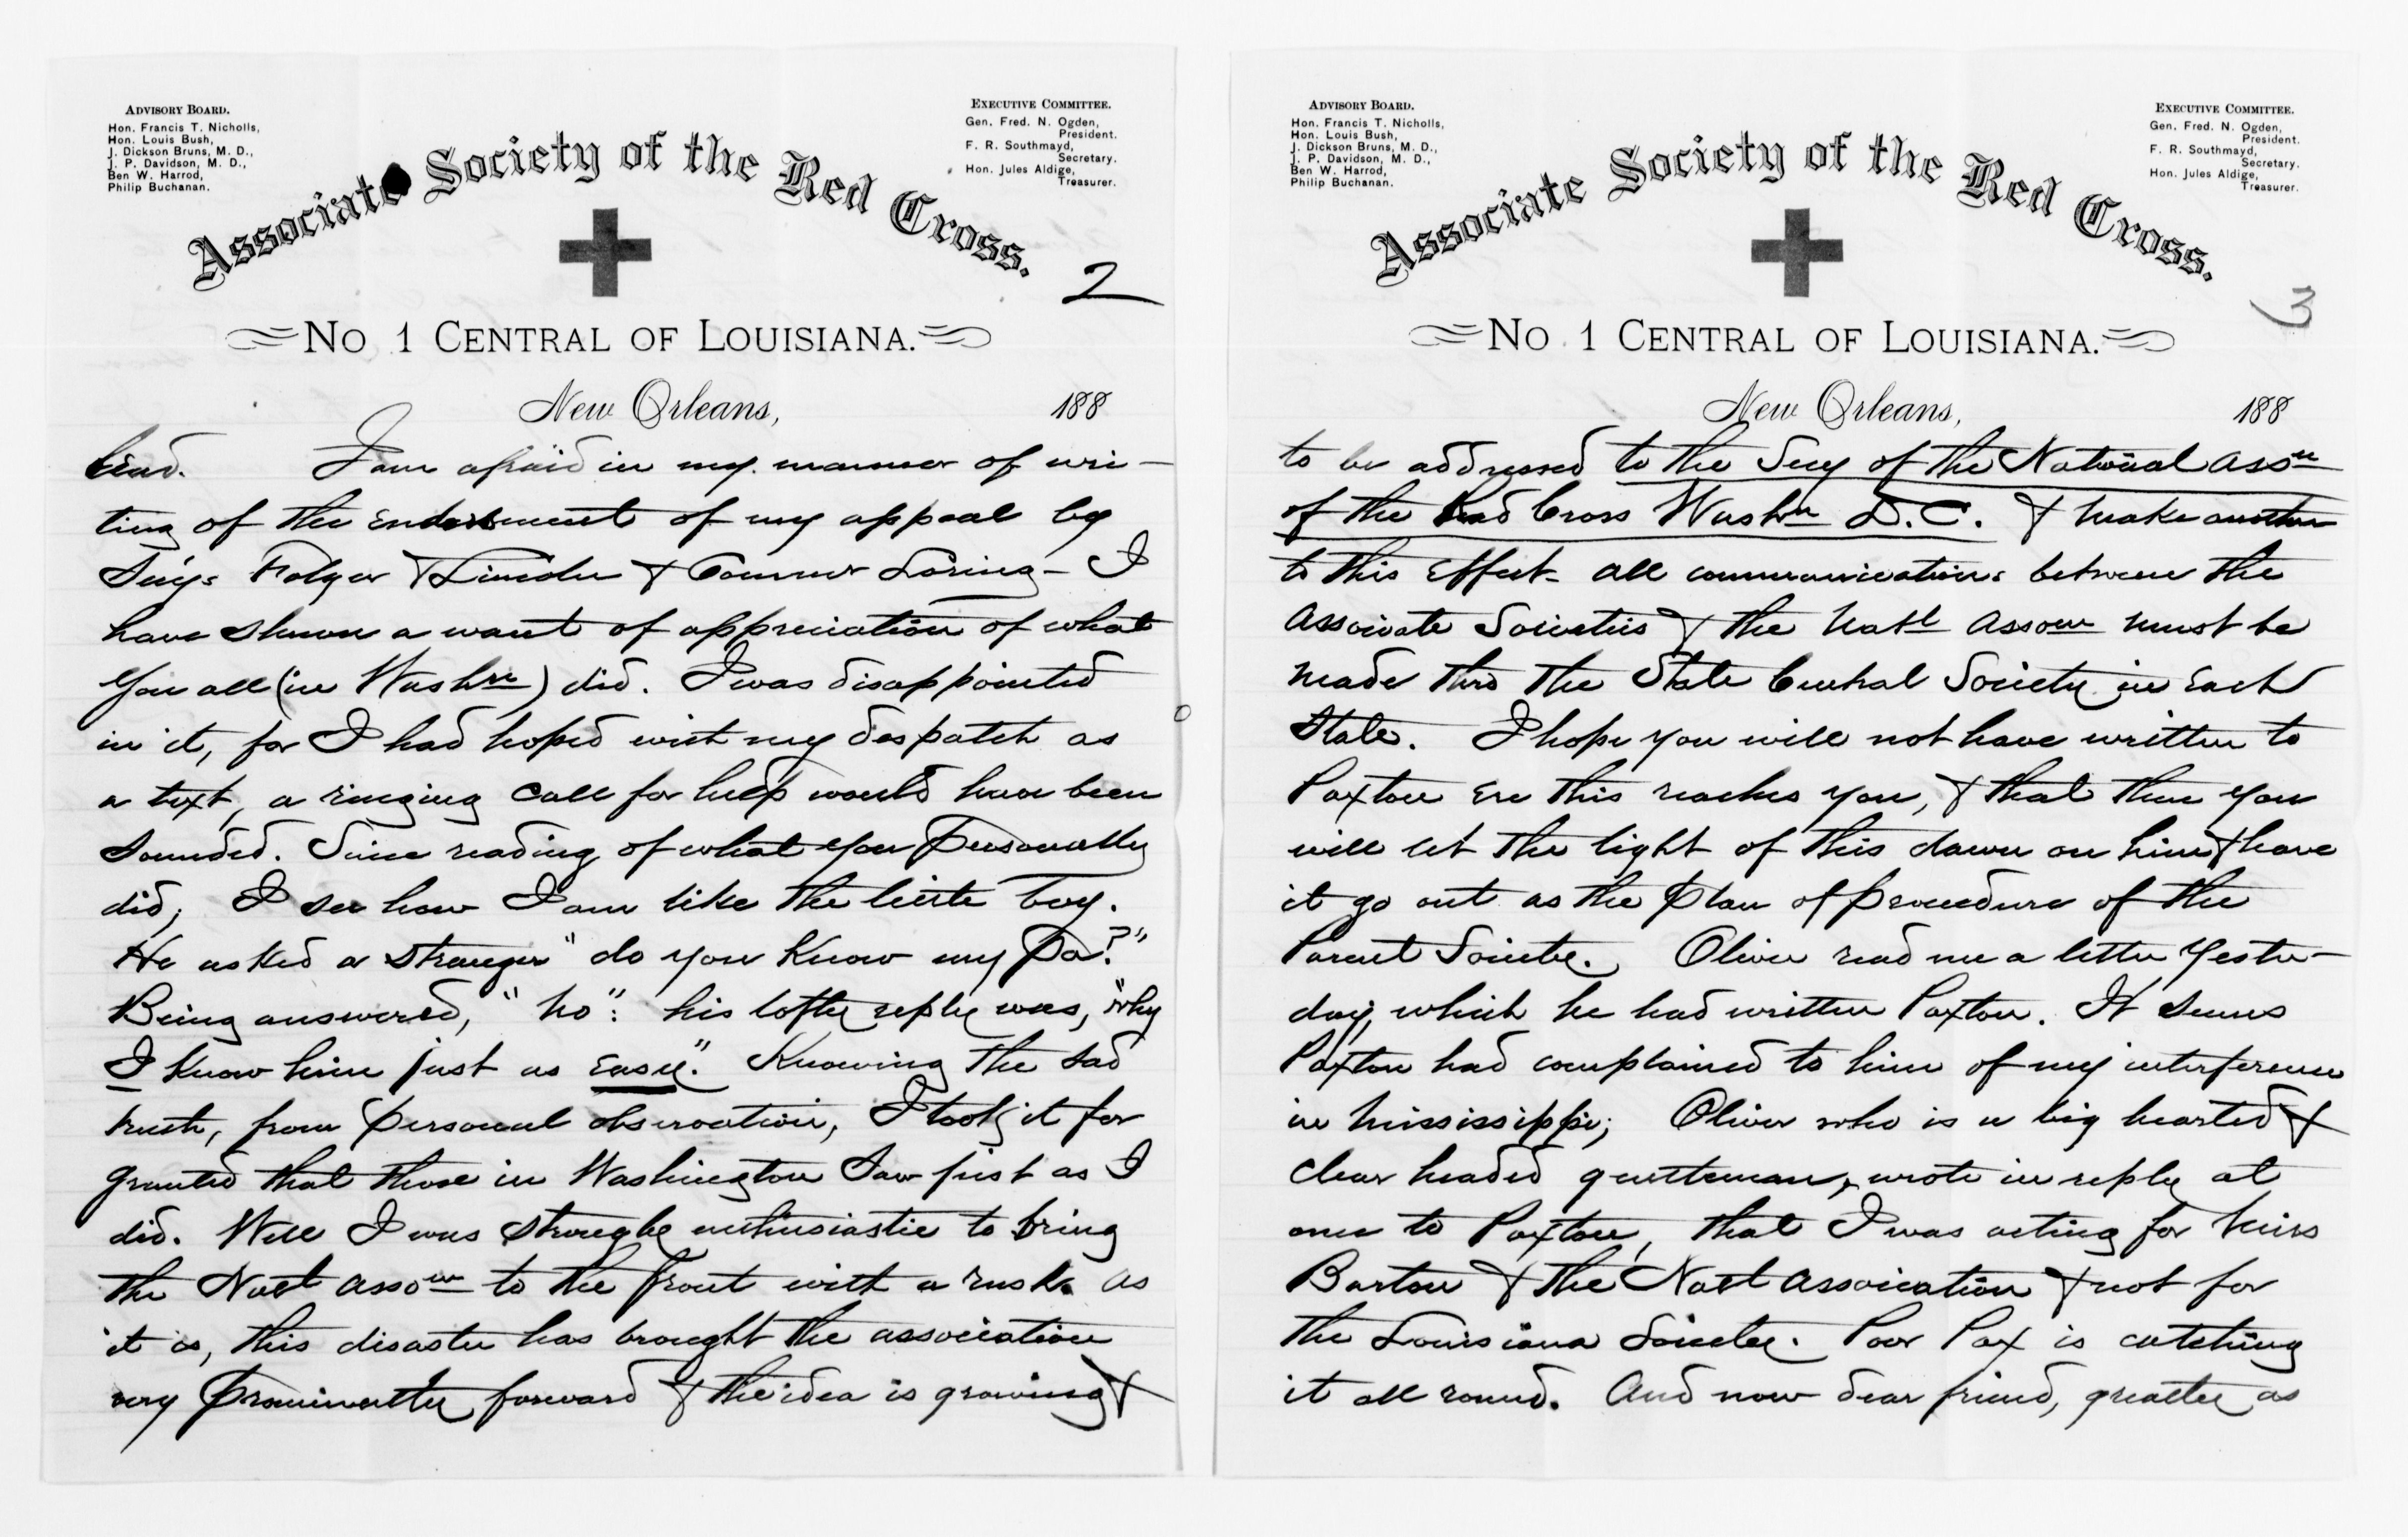 ADVISORY BOARD.
Hon. Francis T. Nicholls,
Hon. Louis Bush,
J. Dickson Bruns, M. D.,
J. P. Davidson, M. D.,
Ben W. Harrod,
Philip Buchanan.
EXECUTIVE COMMITTEE.
Gen. Fred. N. Ogden,
President.
F. R. Southmayd,
Secretary.
Hon. Jules Aldige,
Treasurer.
Associate Society of the Red Cross.
2
No 1 CENTRAL OF LOUISIANA.
New Orleans, 188
I am afraid in my manner of wri-
ting of the endorsement of my appeal by
Secys Folger & Lincoln & Commr Loring - I
have shown a want of appreciation of what
you all (in Washn) did. I was disappointed
in it, for I had hoped with my despatch as
a text, a ringing call for help would have been
sounded. Since reading of what you personally
did, I see how I am like the little boy.
He asked a stranger "do you know my Pa?"
Being answered, "no": his lofty reply was, "why
I know him just as easy." Knowing the sad
truth, from personal observation, I took it for
granted that those in Washington saw just as I
did. Well I was strongly enthusiastic to bring
the Natl Asson to the front with a rush. As
it is, this disaster has brought the association
very prominently forward & the idea is growing &
ADVISORY BOARD.
Hon. Francis T. Nicholls,
Hon. Louis Bush,
J. Dickson Bruns, M. D.,
J. P. Davidson, M. D.,
Ben W. Harrod,
Philip Buchanan.
EXECUTIVE COMMITTEE.
Gen. Fred. N. Ogden,
President.
F. R. Southmayd,
Secretary.
Hon. Jules Aldige,
Treasurer.
Associate Society of the Red Cross.
3
No 1 CENTRAL OF LOUISIANA.
New Orleans, 188
to be addressed to the Secy of the National Assn
of the Red Cross Washn D.C. & make another
to this effect - all communications between the
Associate Societies & the Natl Asson must be
made thro the State Central Society in each
State. I hope you will not have written to
Paxton ere this reaches you, & that then you
will let the light of this dawn on him & have
it go out as the plan of procedure of the
Parent Society. Oliver read me a letter yester-
day, which he had written Paxton. It seems
Paxton had complained to him of my interference
in Mississippi; Oliver who is a big hearted &
clear headed gentleman, wrote in reply at
once to Paxton, that I was acting for Miss
Barton & the Natl Association & not for
the Louisiana Society. Poor Pax is catching
it all round. And now dear friend, greatly as